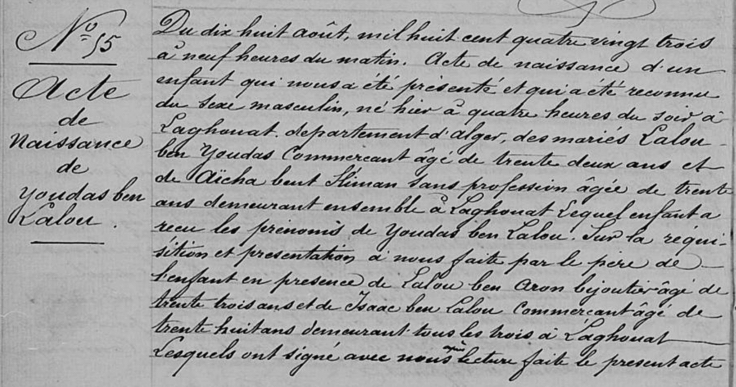 N° 15
Acte
de
Naissance
de
Youdas ben
Lalou.
Du dix huit août, mil huit cent quatre vingt trois
à neuf heures du matin. Acte de naissance d'un
enfant qui nous a été présenté et qui a été reconnu
du sexe masculin, né hier à quatre heures du soir à
Laghouat, departement d'alger, des mariés Lalou
ben Youdas Commercant âgé de trente deux ans et
de Aïcha bent Sliman sans profession âgée de trente
ans demeurant ensemble à Laghouat Lequel enfant a
recu les prénoms de Youdas ben Lalou. Sur la réqui-
sition et presentation à nous faite par le pere de
l'enfant en presence de Lalou ben Aron bijoutier âgé de
trente trois ans et de Isaac ben Lalou Commercant âgé de
trente huit ans demeurant tous les trois à Laghouat
Lesquels ont signé avec nous après lecture faite le present acte